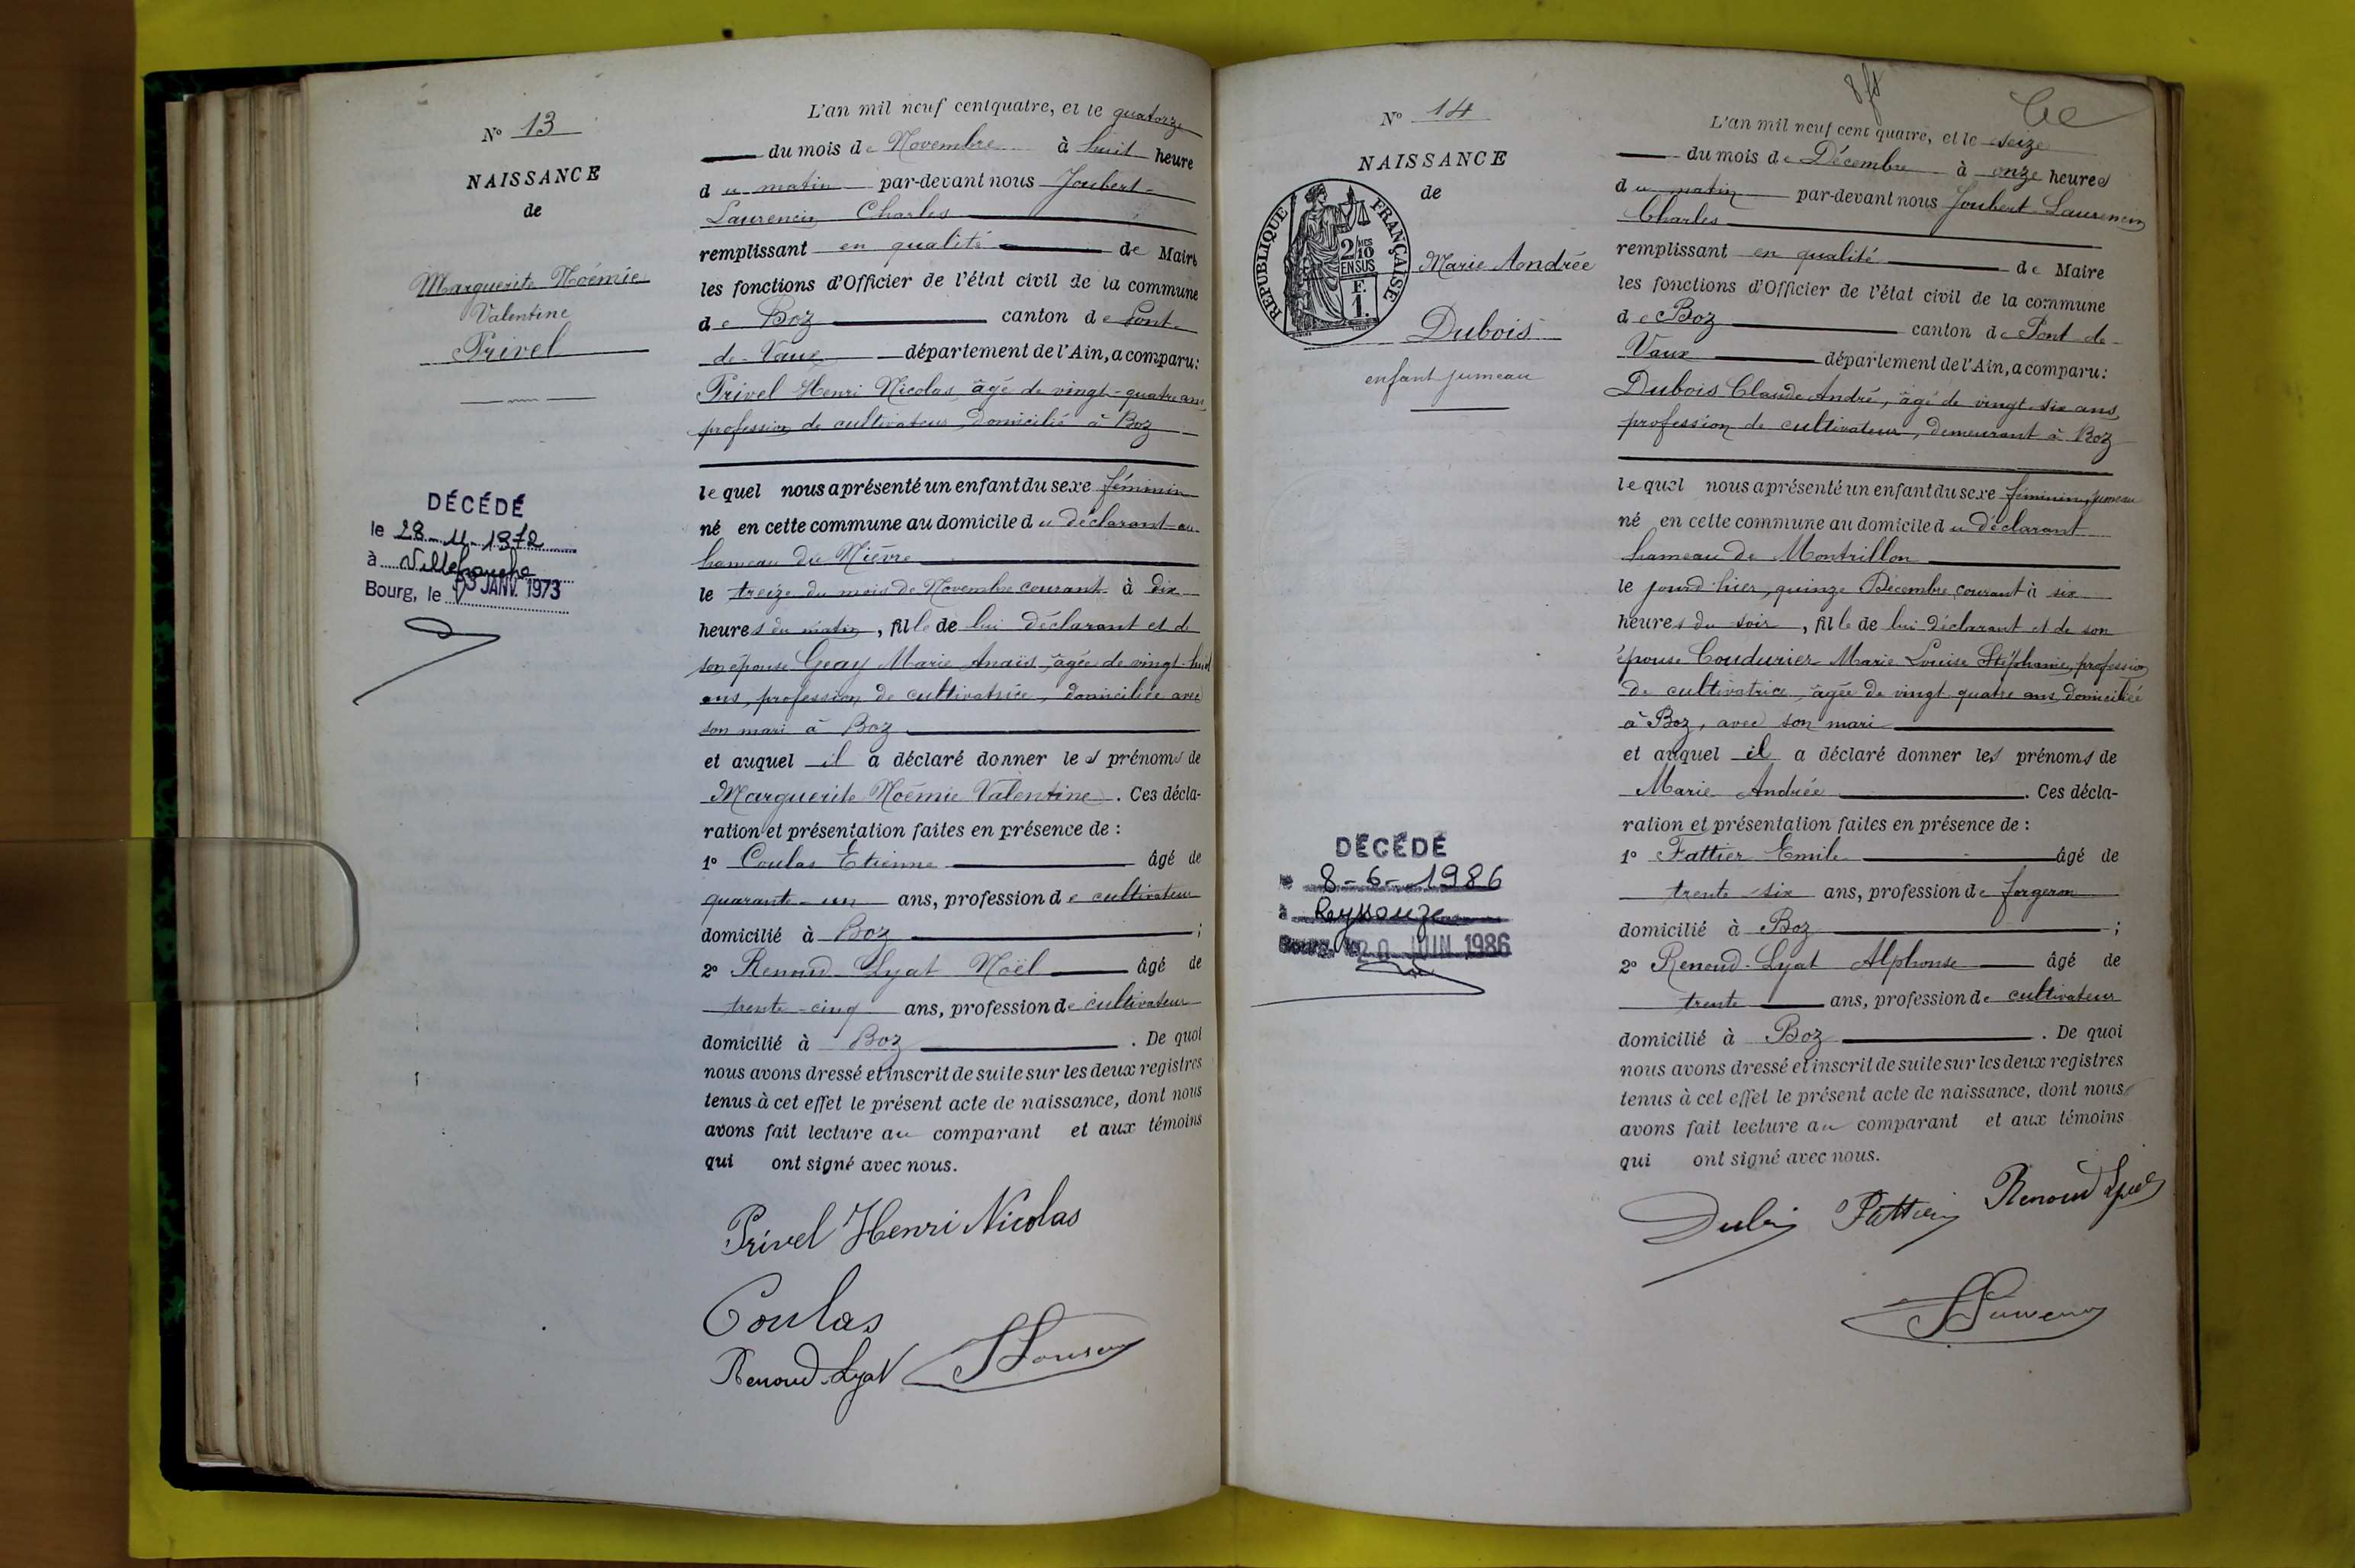 N° 13
NAISSANCE
de
Marguerite Noémie
Valentine
Privel
DÉCÉDÉ
le 28-11-1972
à Villefranche
Bourg, le 03 JANV. 1973
L'an mil neuf cent quatre, et le quatorze
du mois de Novembre à huit heure
du matin par-devant nous Joubert-
Laurencin Charles
remplissant en qualité de Maire
les fonctions d'Officier de l'état civil de la commune
de Boz canton de Pont-
de-Vaux département de l'Ain, a comparu:
Privel Henri Nicolas, âgé de vingt-quatre ans,
profession de cultivateur, domicilié à Boz
lequel nous a présenté un enfant du sexe féminin
né en cette commune au domicile du déclarant au
hameau du Nièvre
le treize du mois de Novembre courant à dix
heures du matin, fille de lui déclarant et d
son épouse Geay Marie Anaïs, âgée de vingt-huit
ans, profession de cultivatrice, domiciliée avec
son mari à Boz
et auquel il a déclaré donner les prénoms de
Marguerite Noémie Valentine. Ces décla-
ration et présentation faites en présence de :
1° Coulas Etienne âgé de
quarante-un ans, profession de cultivateur
domicilié à Boz ;
2° Renoud-Lyat Noël âgé de
trente-cinq ans, profession de cultivateur
domicilié à Boz. De quoi
nous avons dressé et inscrit de suite sur les deux registres
tenus à cet effet le présent acte de naissance, dont nous
avons fait lecture au comparant et aux témoins
qui ont signé avec nous.
Privel Henri Nicolas
Coulas
Renoud-Lyat
N° 14
NAISSANCE
de
RÉPUBLIQUE FRANÇAISE
2/10 MES
EN SUS
F.
1.
Marie Andrée
Dubois
enfant jumeau
DÉCÉDÉ
le 8-6-1986
à Reyssouze
Bourg, le 20 JUIN 1986
L'an mil neuf cent quatre, et le seize
du mois de Décembre à onze heures
du matin par-devant nous Joubert-Laurencin
Charles
remplissant en qualité de Maire
les fonctions d'Officier de l'état civil de la commune
de Boz canton de Pont-de-
Vaux département de l'Ain, a comparu:
Dubois Claude André, âgé de vingt-six ans,
profession de cultivateur, demeurant à Boz
lequel nous a présenté un enfant du sexe féminin, jumeau
né en cette commune au domicile du déclarant
hameau de Montrillon
le jourd'hier, quinze Décembre courant à six
heures du soir, fille de lui déclarant et de son
épouse Coudurier Marie Louise Stéphanie, profession
de cultivatrice, âgée de vingt-quatre ans, domiciliée
à Boz, avec son mari
et auquel il a déclaré donner les prénoms de
Marie Andrée. Ces décla-
ration et présentation faites en présence de :
1° Fattier Emile âgé de
trente-six ans, profession de forgeron
domicilié à Boz ;
2° Renoud-Lyat Alphonse âgé de
trente ans, profession de cultivateur
domicilié à Boz. De quoi
nous avons dressé et inscrit de suite sur les deux registres
tenus à cet effet le présent acte de naissance, dont nous
avons fait lecture au comparant et aux témoins
qui ont signé avec nous.
Dubois Fattier Renoud Lyat